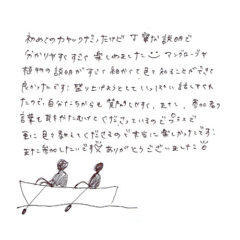 初めてのカヤックだったけど丁寧な説明で
分かりやすくすごく楽しめました マングローブや
植物の説明がすごく細かくて色々知ることができて
良かったです! 盛り上げようとしていっぱい話しをしてくれ
たので、自分たちからも質問しやすく、また、参加者の
言葉を耳をかたむけてくださっているのでプラスで
更に色々教えてくださるので本当に楽しかったです!
また参加したいです ありがとうございました